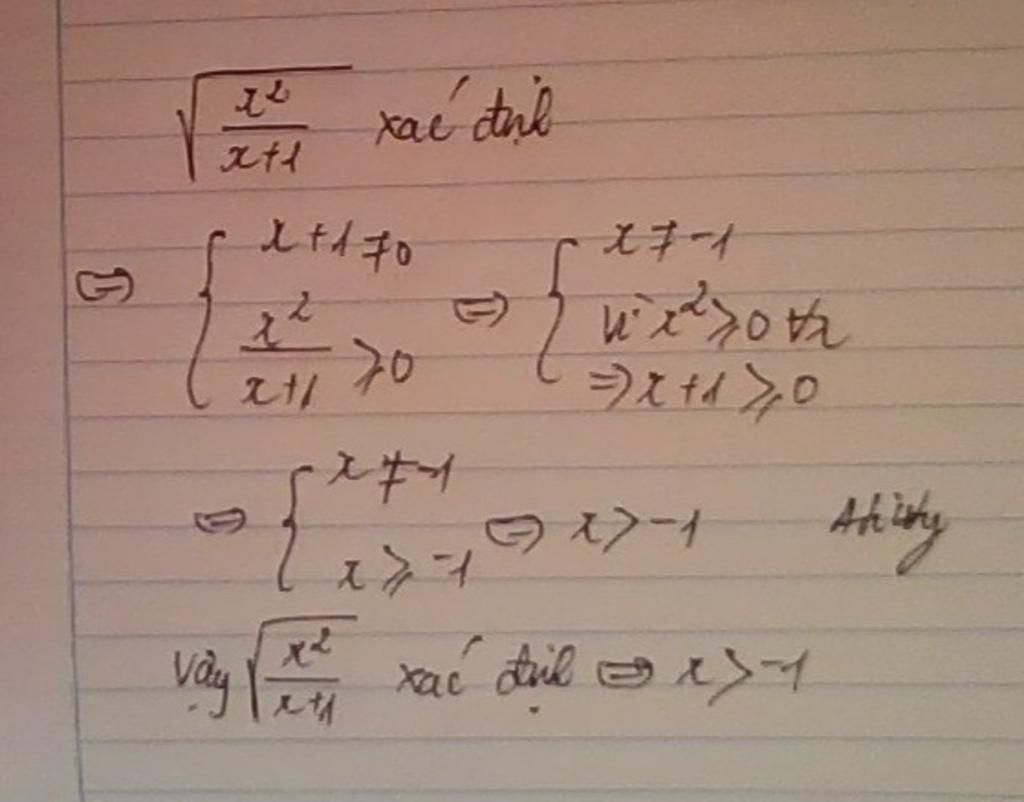 √(x²/(x+1)) xác định
⇔ { x+1≠0 ; x²/(x+1) ⩾0 ⇔ { x≠-1 ; vì x²⩾0 ∀x ⇒ x+1⩾0
⇔ { x≠-1 ; x⩾-1 ⇔ x>-1
Vậy √(x²/(x+1)) xác định ⇔ x>-1